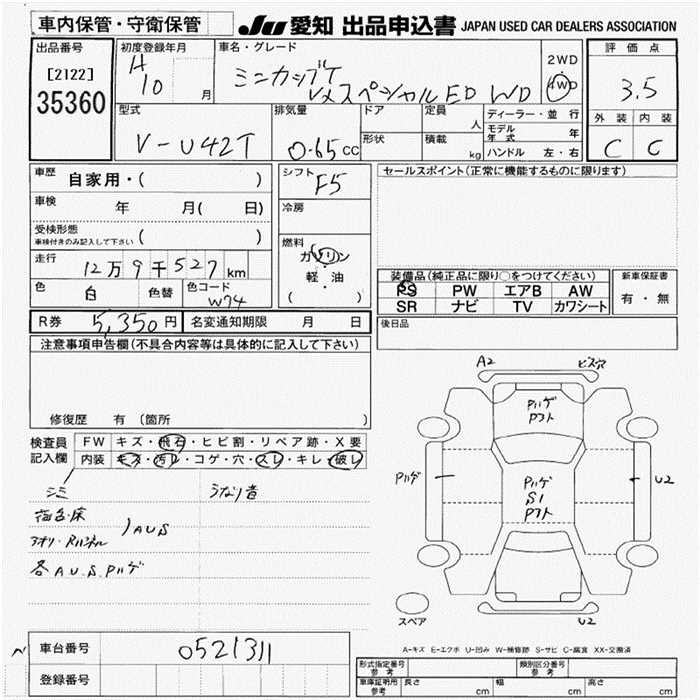 車内保管・守衛保管
JU 愛知 出品申込書 JAPAN USED CAR DEALERS ASSOCIATION
出品番号
[2122]
35360
初度登録年月
H
10 月
車名・グレード
ミニカップ
VXスペシャルED WD
2WD
4WD
評価点
3.5
外装 内装
C C
型式
V-U42T
排気量
0.65 CC
ドア
形状
定員
人
積載
kg
ディーラー・並行
モデル年式 年
ハンドル 左・右
車歴
自家用・( )
車検
年 月( 日)
受検形態
車検付きのみ記入して下さい ( )
走行
12万9千527km
色
白
色替
色コード
W74
シフト
F5
冷房
燃料
ガソリン
軽・油
( )
セールスポイント(正常に機能するものに限ります)
装備品(純正品に限り○をつけてください)
PS PW エアB AW
SR ナビ TV カワシート
新車保証書
有・無
R券 5,350円 名変通知期限 月 日
後日品
注意事項申告欄(不具合内容等は具体的に記入して下さい)
修復歴 有 (箇所 )
検査員
記入欄
FW キズ・飛石・ヒビ割・リペア跡・X要
内装 キズ・汚レ・コゲ・穴・スレ・キレ・破レ
シミ うなり音
荷台・床
アオリ・パネル
AUS
各AUSPハゲ
A2 ビス穴
Pハゲ
Pフト
Pハゲ
Pハゲ
S1
Pフト
U2
スペア
U2
A-キズ E-エクボ U-凹み W-補修跡 S-サビ C-腐食 XX-交換済
車台番号
0521311
登録番号
形式指定番号
参考
類別区分番号
参考
車庫証明用
参考
長さ cm 幅 cm 高さ cm